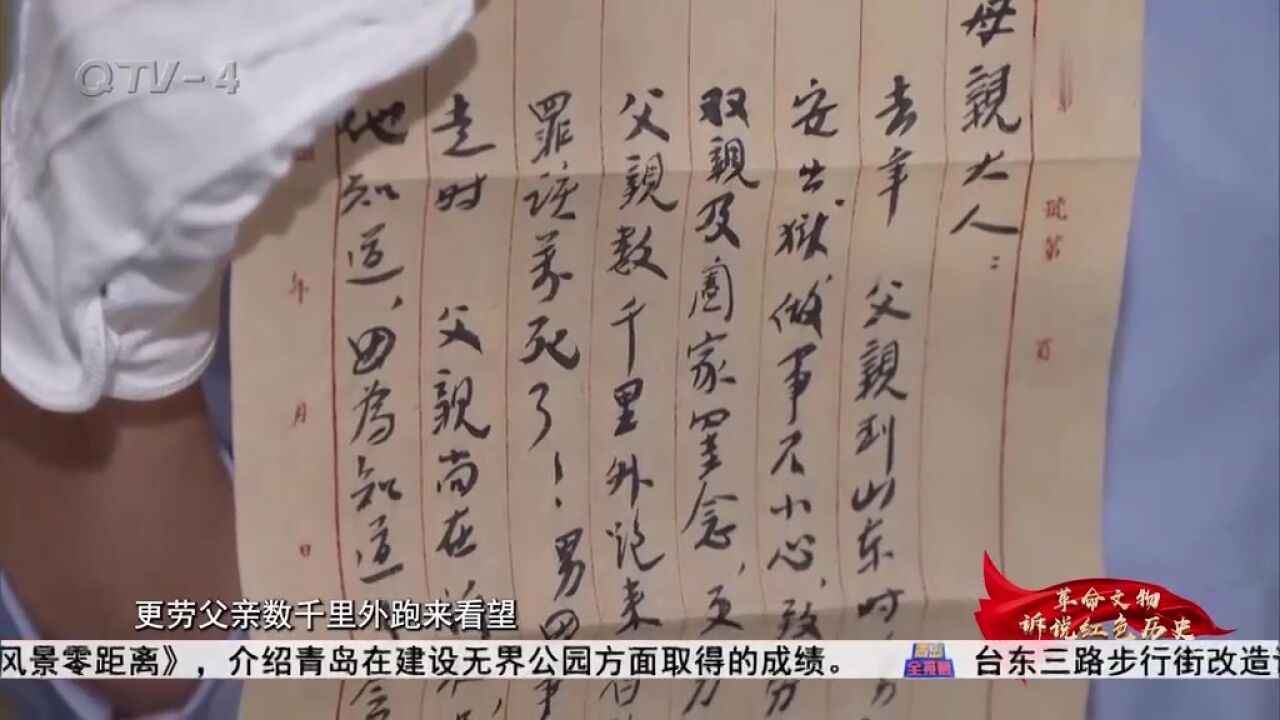 QTV-4
母親大人：
去年 父親到山東時
安出獄做事不小心，致
双親及闔家罣念，更
父親数千里外跑来
罪該萬死了！男四
走时 父親尚在
他知道，因為知道
號第
頁
年
月
日
更劳父亲数千里外跑来看望
革命文物
诉说红色历史
风景零距离》，介绍青岛在建设无界公园方面取得的成绩。
台东三路步行街改造